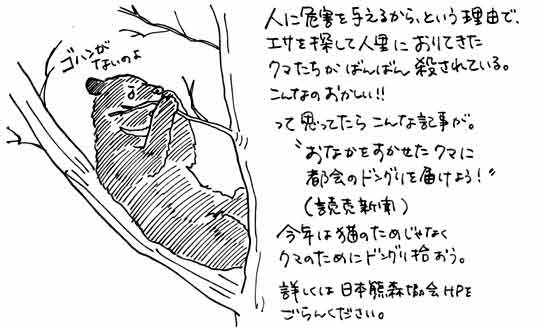 ゴハンが
ないのよ
人に危害を与えるから、という理由で、
エサを探して人里におりてきた
クマたちがばんばん殺されている。
こんなのおかしい!!
って思ってたらこんな記事が。
"おなかをすかせたクマに
都会のドングリを届けよう!"
(読売新聞)
今年は猫のためじゃなく
クマのためにドングリ拾おう。
詳しくは日本熊森協会HPを
ごらんください。